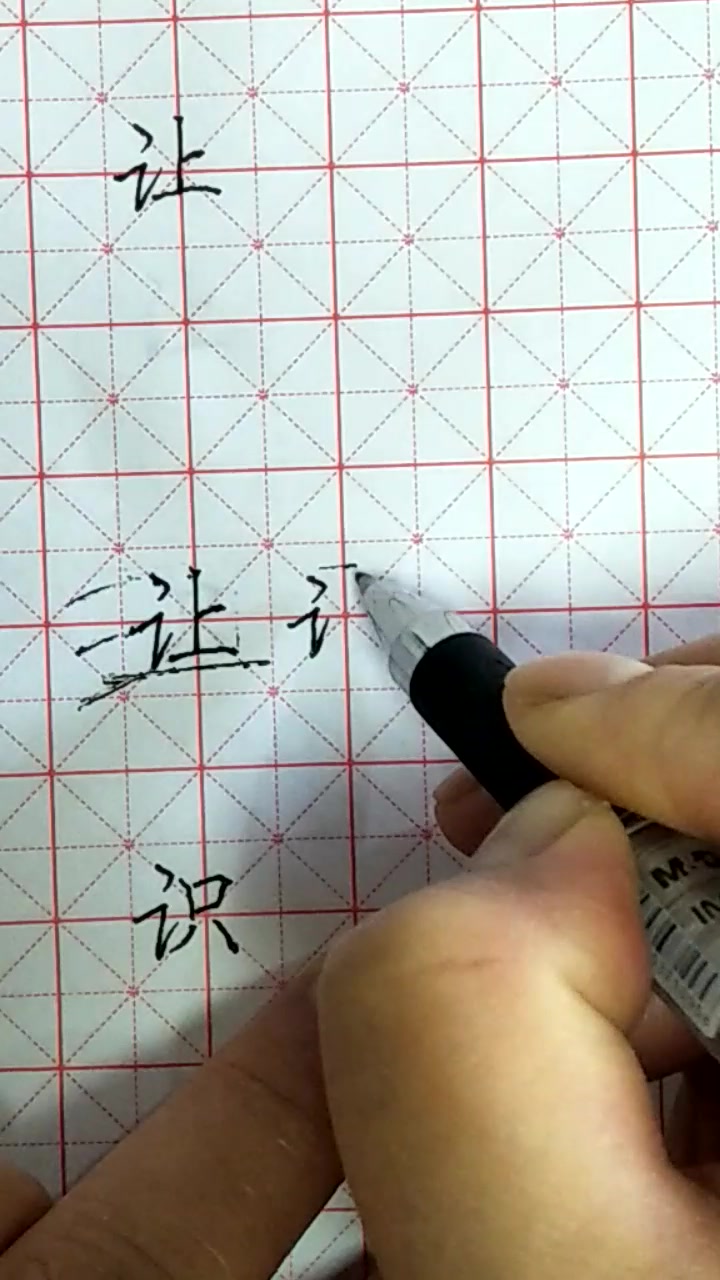 让
让 讠
识
M
IN